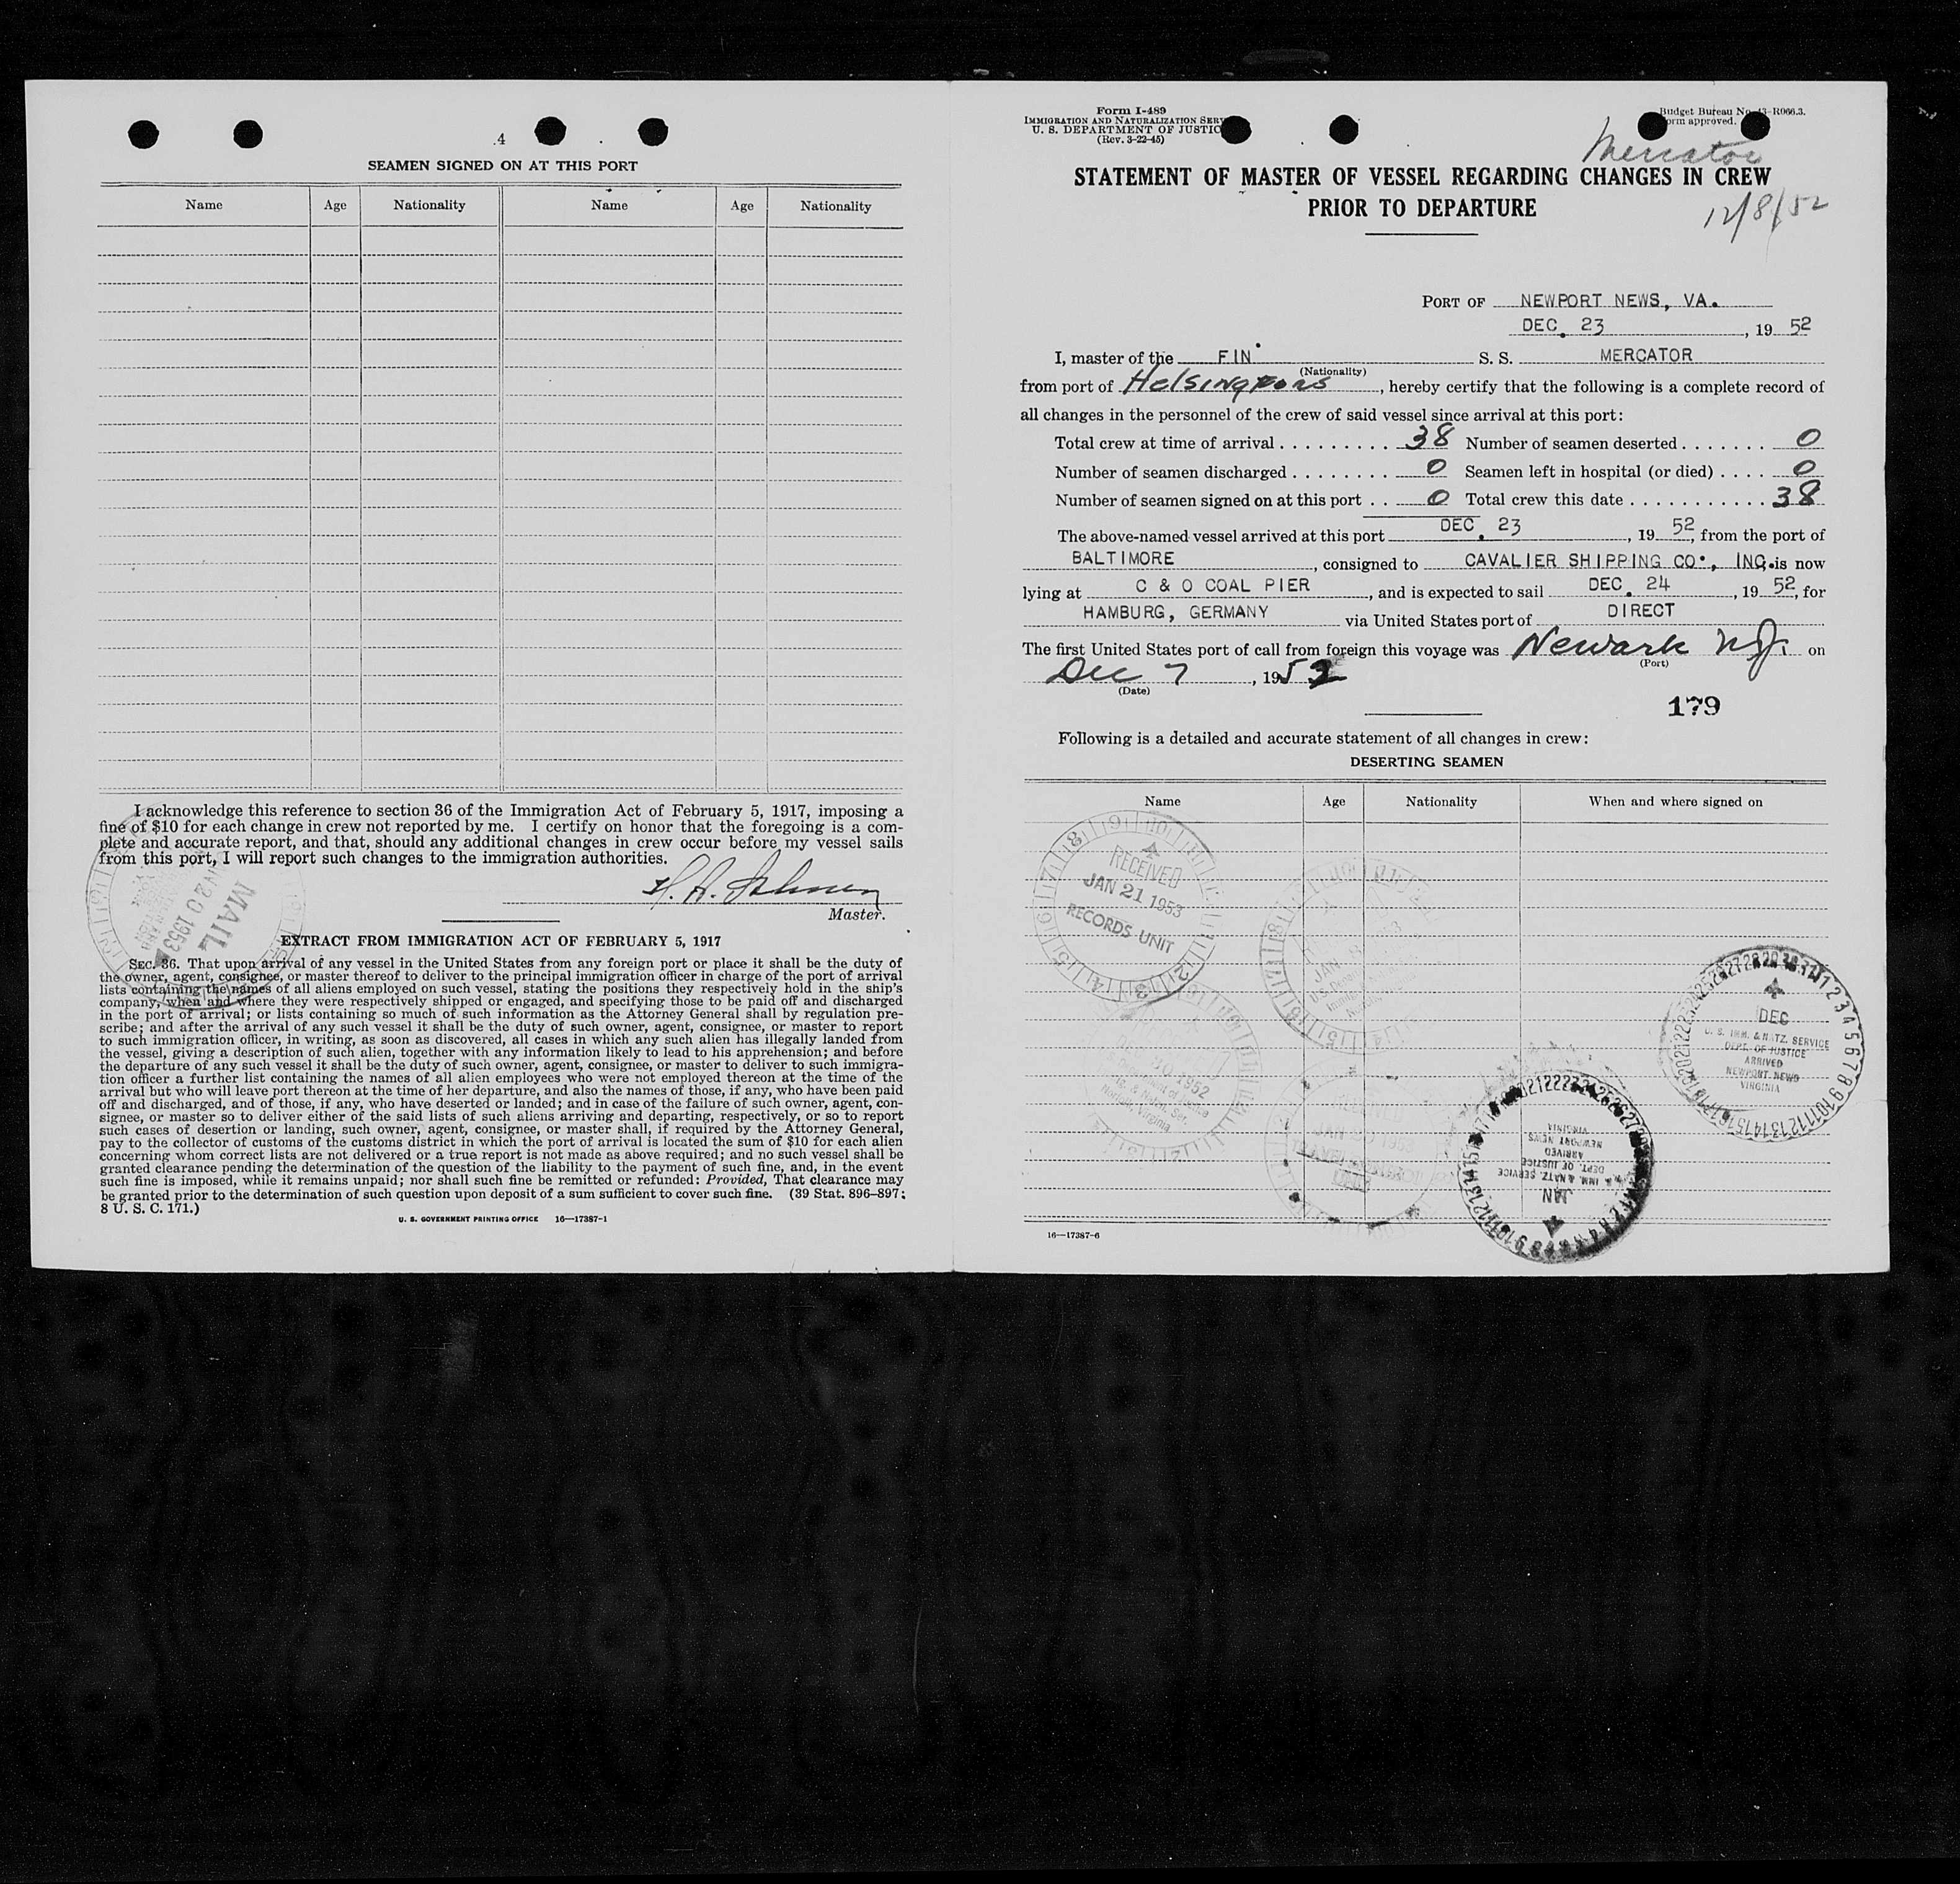 4
SEAMEN SIGNED ON AT THIS PORT
Name Age Nationality Name Age Nationality
I acknowledge this reference to section 36 of the Immigration Act of February 5, 1917, imposing a
fine of $10 for each change in crew not reported by me. I certify on honor that the foregoing is a com-
plete and accurate report, and that, should any additional changes in crew occur before my vessel sails
from this port, I will report such changes to the immigration authorities.
Master.
MAIL
20 1953
EXTRACT FROM IMMIGRATION ACT OF FEBRUARY 5, 1917
SEC. 36. That upon arrival of any vessel in the United States from any foreign port or place it shall be the duty of
the owner, agent, consignee, or master thereof to deliver to the principal immigration officer in charge of the port of arrival
lists containing the names of all aliens employed on such vessel, stating the positions they respectively hold in the ship's
company, when and where they were respectively shipped or engaged, and specifying those to be paid off and discharged
in the port of arrival; or lists containing so much of such information as the Attorney General shall by regulation pre-
scribe; and after the arrival of any such vessel it shall be the duty of such owner, agent, consignee, or master to report
to such immigration officer, in writing, as soon as discovered, all cases in which any such alien has illegally landed from
the vessel, giving a description of such alien, together with any information likely to lead to his apprehension; and before
the departure of any such vessel it shall be the duty of such owner, agent, consignee, or master to deliver to such immigra-
tion officer a further list containing the names of all alien employees who were not employed thereon at the time of the
arrival but who will leave port thereon at the time of her departure, and also the names of those, if any, who have been paid
off and discharged, and of those, if any, who have deserted or landed; and in case of the failure of such owner, agent, con-
signee, or master so to deliver either of the said lists of such aliens arriving and departing, respectively, or so to report
such cases of desertion or landing, such owner, agent, consignee, or master shall, if required by the Attorney General,
pay to the collector of customs of the customs district in which the port of arrival is located the sum of $10 for each alien
concerning whom correct lists are not delivered or a true report is not made as above required; and no such vessel shall be
granted clearance pending the determination of the question of the liability to the payment of such fine, and, in the event
such fine is imposed, while it remains unpaid; nor shall such fine be remitted or refunded: Provided, That clearance may
be granted prior to the determination of such question upon deposit of a sum sufficient to cover such fine. (39 Stat. 896-897;
8 U. S. C. 171.)
U. S. GOVERNMENT PRINTING OFFICE 16—17387-1
Form I-489
IMMIGRATION AND NATURALIZATION SERV
U. S. DEPARTMENT OF JUSTIC
(Rev. 3-22-45)
Budget Bureau No. 43-R066.3.
orm approved.
Mercator
STATEMENT OF MASTER OF VESSEL REGARDING CHANGES IN CREW
PRIOR TO DEPARTURE
12/8/52
PORT OF NEWPORT NEWS, VA.
DEC. 23, 19 52
I, master of the FIN S. S. MERCATOR
(Nationality)
from port of Helsingfors, hereby certify that the following is a complete record of
all changes in the personnel of the crew of said vessel since arrival at this port:
Total crew at time of arrival 38 Number of seamen deserted 0
Number of seamen discharged 0 Seamen left in hospital (or died) 0
Number of seamen signed on at this port 0 Total crew this date 38
The above-named vessel arrived at this port DEC. 23, 19 52, from the port of
BALTIMORE, consigned to CAVALIER SHIPPING CO., INC. is now
lying at C & O COAL PIER, and is expected to sail DEC. 24, 19 52, for
HAMBURG, GERMANY via United States port of DIRECT
The first United States port of call from foreign this voyage was Newark N.J. on
(Port)
Dec 7, 1952
(Date)
179
Following is a detailed and accurate statement of all changes in crew:
DESERTING SEAMEN
Name Age Nationality When and where signed on
RECEIVED
JAN 21 1953
RECORDS UNIT
DEC
U. S. IMM. & NATZ. SERVICE
DEPT. OF JUSTICE
ARRIVED
NEWPORT NEWS
VIRGINIA
JAN
U. S. IMM. & NATZ. SERVICE
DEPT. OF JUSTICE
ARRIVED
NEWPORT NEWS
VIRGINIA
16—17387-6